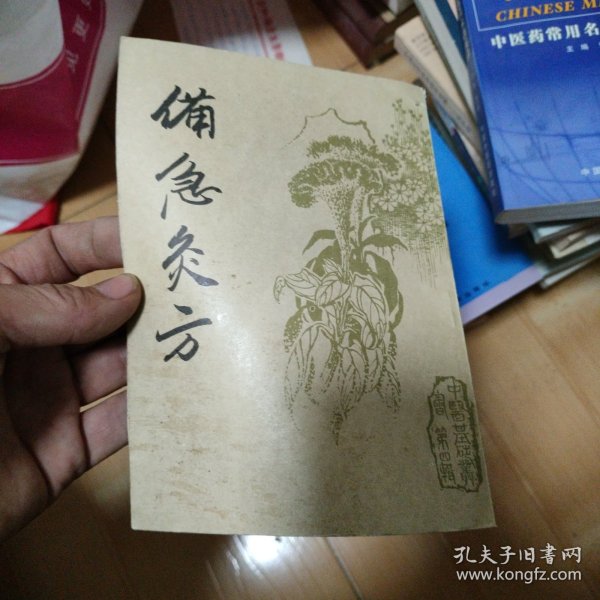 備急灸方
中醫古籍叢書
第四輯
CHINESE M
中医药常用名
主编
中国
孔夫子旧书网
www.kongfz.com